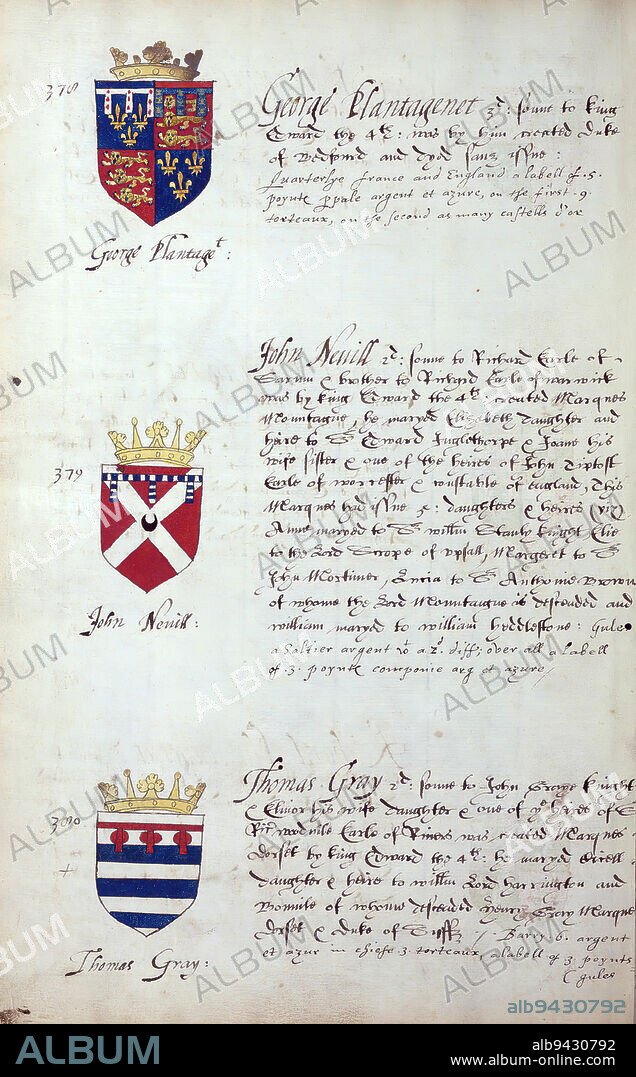 378
George Plantagenet 3d: sonne to King
Edward the 4th: was by him created Duke
of Bedford and dyed sanz issue:
Quarterlye france and England a labell of .5.
poynts p pale argent et azure, on the first .9.
torteaux, on the second as many castells d'or
George Plantaget:
John Nevill 2d: sonne to Richard Earle of
Sarum & brother to Richard Earle of warwick
was by king Edward the 4th: created Marques
Mountague, he maryed Elizabeth daughter and
heire to Sr Edward Inglethorpe & Joane his
wife sister & one of the heires of John Tiptoft
Earle of worcester & constable of England, This
Marques had issue 5: daughters & heires (viz)
Anne maryed to Sr willm Stanly knight Elie
to the Lord Scrope of vpsall, Margeret to Sr
John Mortimer, Lucia to Sr Anthonie Brown
of whome the Lord Mountague is descended and
william maryed to william Heddlestone: Gules
a Saltier argent a 2. diff; over all a labell
of .3. poynts componie arg et azure
379
John Nevill:
Thomas Gray 2d: sonne to John Graye knight
& Elinor his wife daughter & one of ye heires of Sr
Ric woodvile Earle of Rivers was created Marques
Dorset by king Edward the 4th: he maryed
daughter & heire to willm Lord Harrington and
Bonvile of whome descended Henry Gray Marques
Dorset & Duke of Suff / Barry .6. argent
et azur in chiefe 3. torteaux, a labell of .3. poynts
gules
380
Thomas Gray:
alb9430792
ALBUM
alb9430792
www.album-online.com